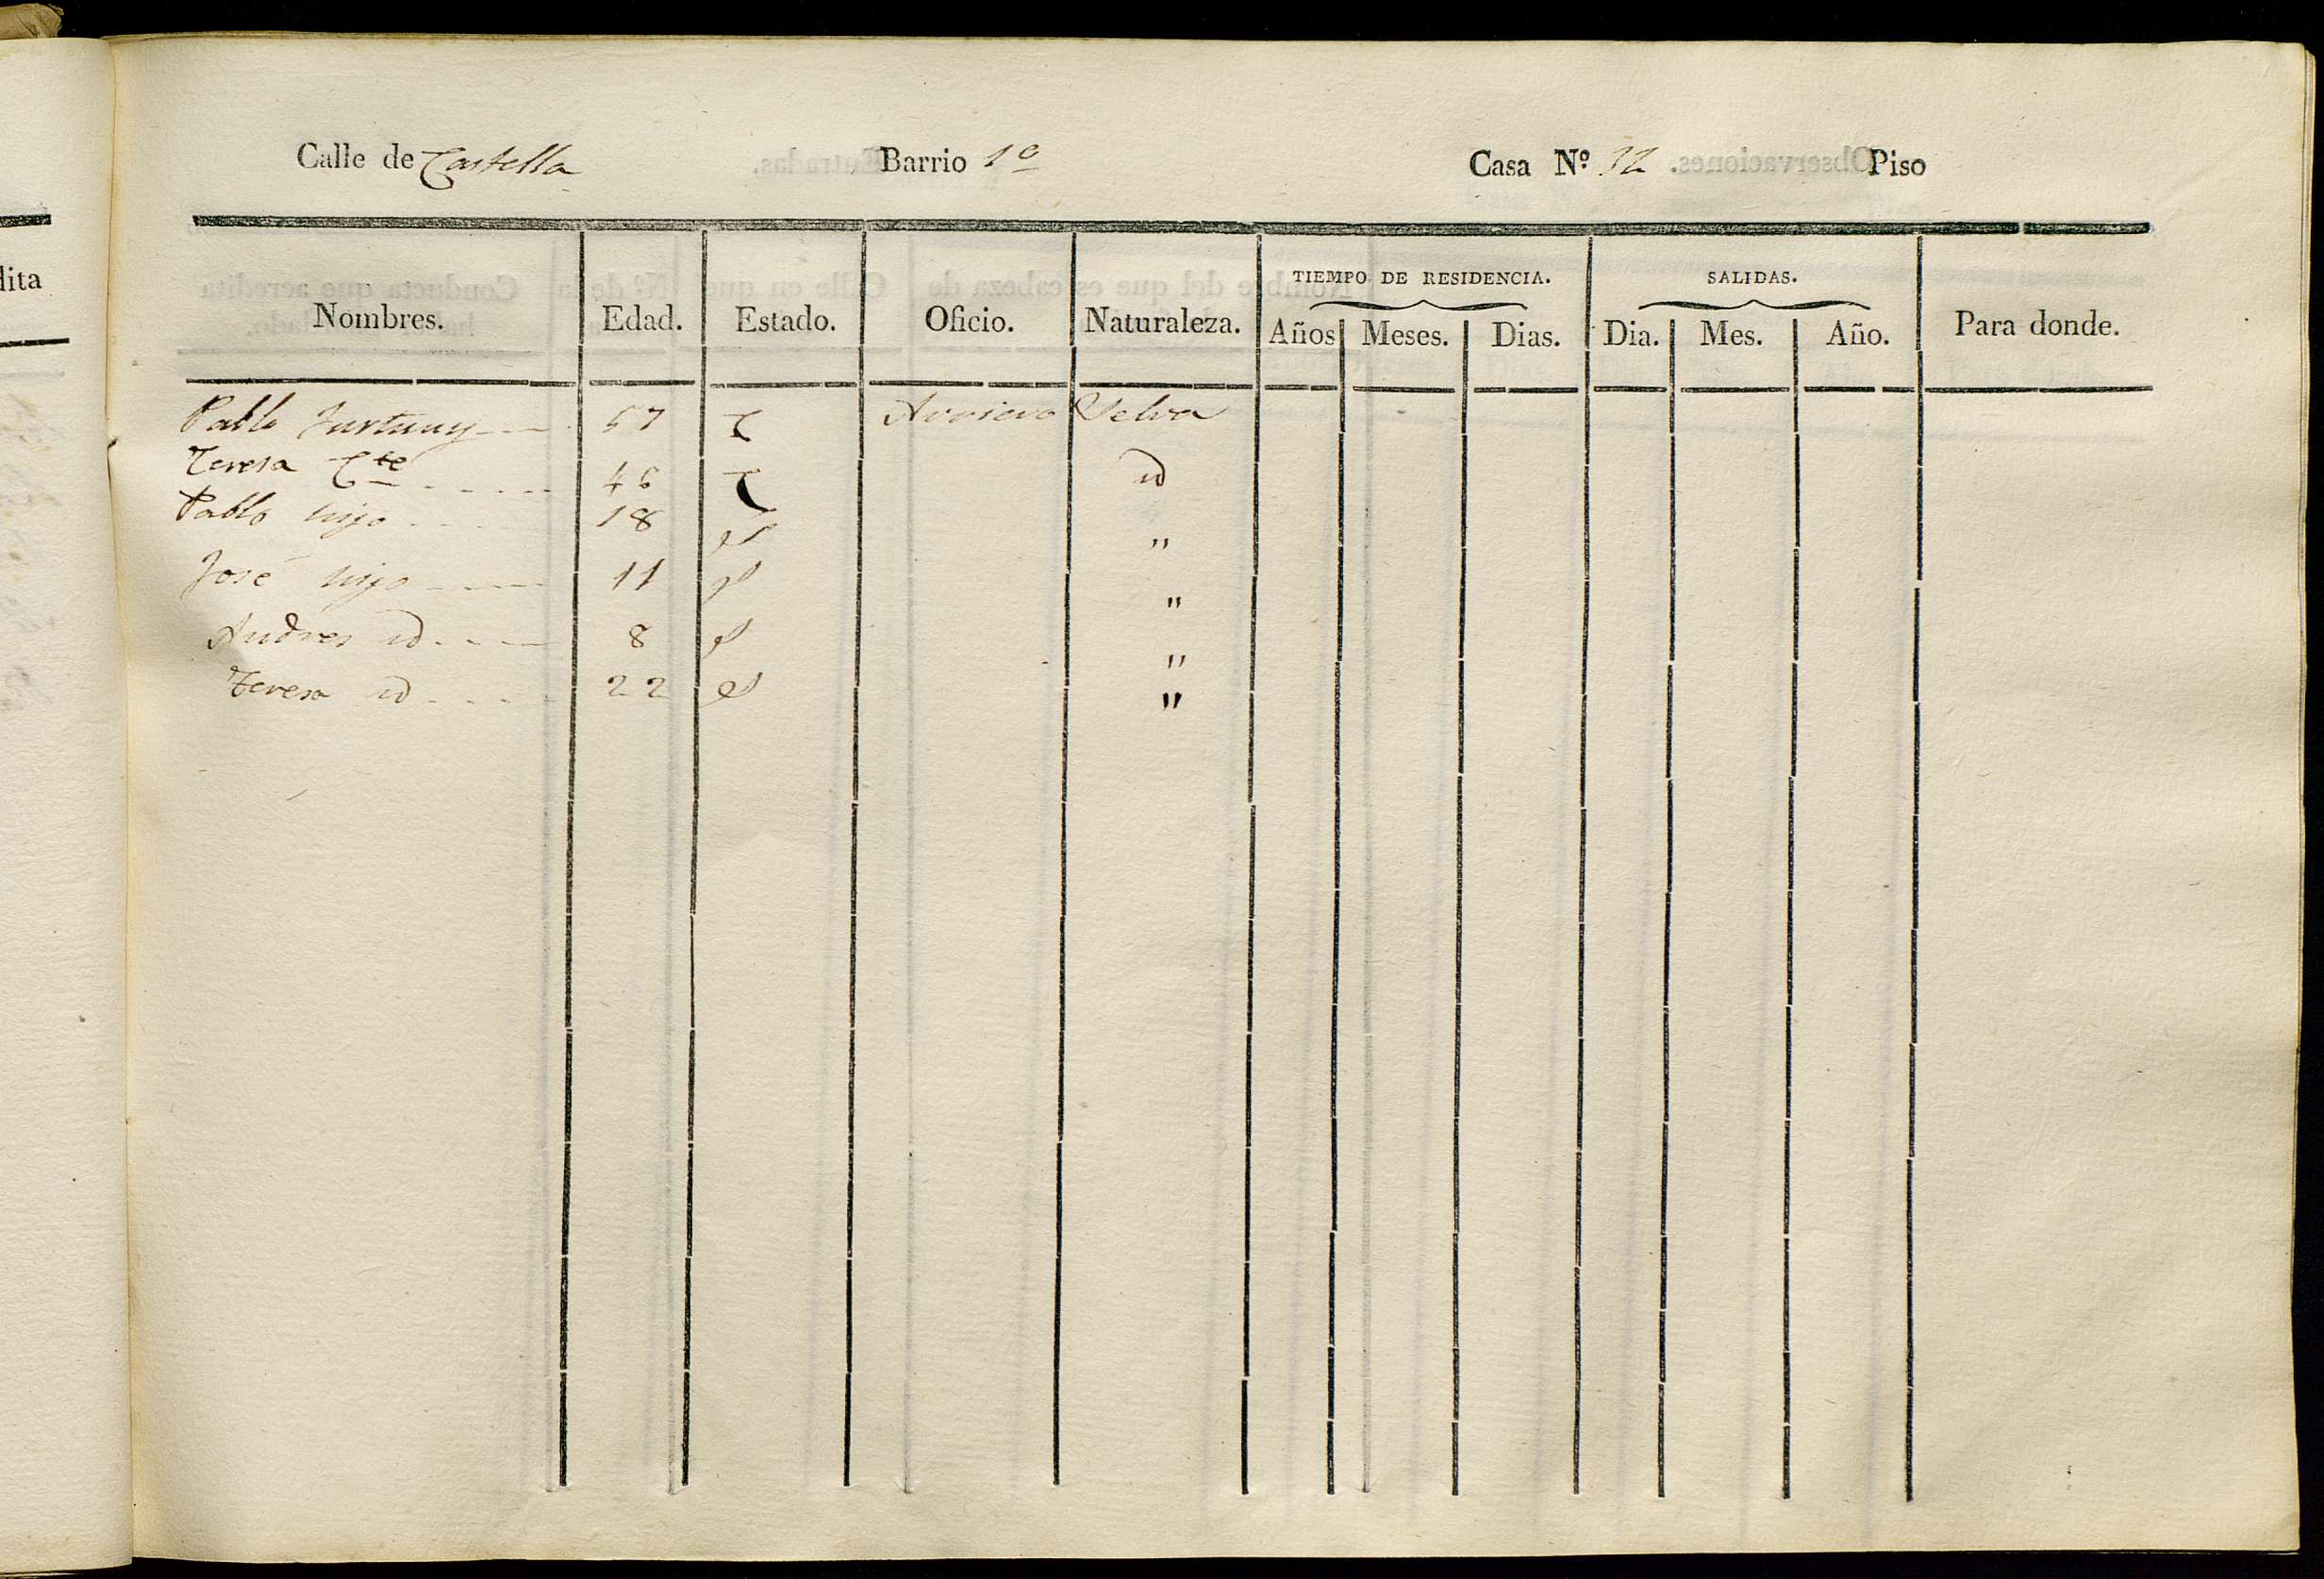 Calle de Castella Barrio 1º Casa Nº 32 Piso
dita
TIEMPO DE RESIDENCIA. SALIDAS.
Nombres. Edad. Estado. Oficio. Naturaleza. Años Meses. Dias. Dia. Mes. Año. Para donde.
Pablo Furtuny 57 C Arriero Selva
Teresa Cte 46 C id
Pablo hijo 18 S "
José hijo 11 S "
Andres id 8 S "
Teresa id 22 S "